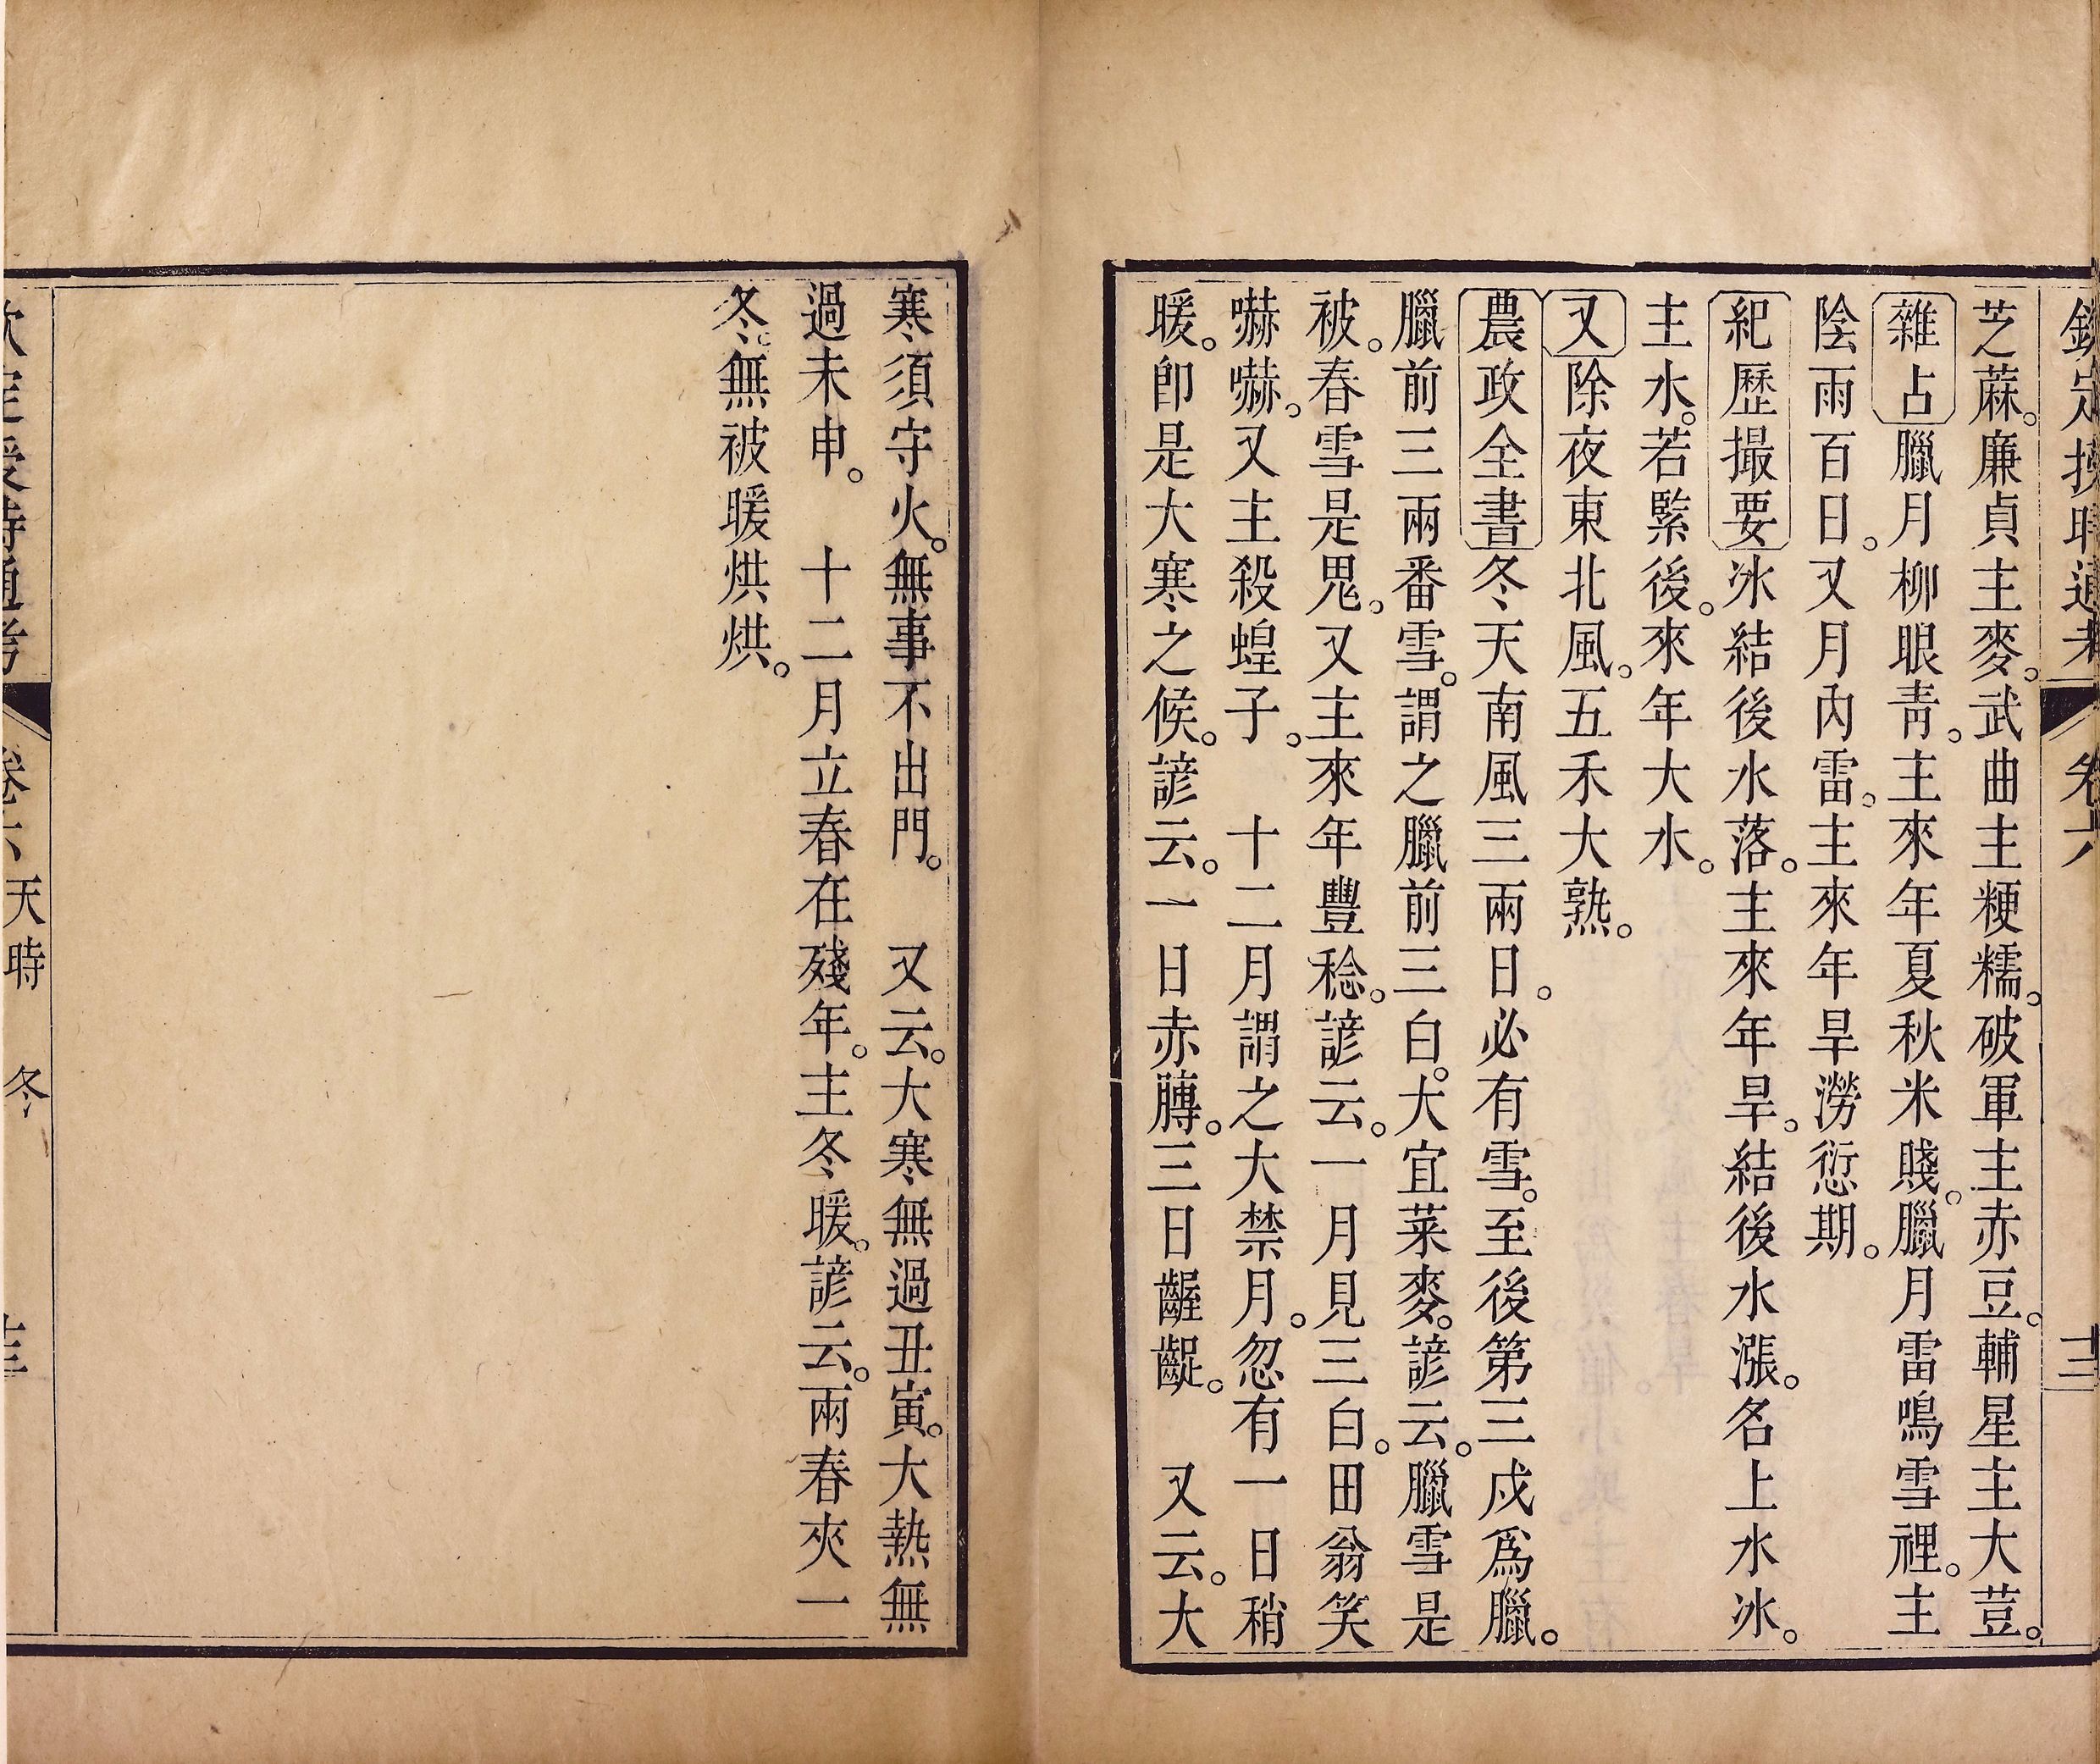 欽定授時通考 卷六 十二
芝蔴。廉貞主麥。武曲主粳糯。破軍主赤豆。輔星主大荳。
雜占臘月柳眼靑。主來年夏秋米賤。臘月雷鳴雪裡。主
陰雨百日。又月內雷。主來年旱澇愆期。
紀歷撮要冰結後水落。主來年旱。結後水漲。名上水冰。
主水。若緊後。來年大水。
又除夜東北風。五禾大熟。
農政全書冬天南風三兩日。必有雪。至後第三戍爲臘。
臘前三兩番雪。謂之臘前三白。大宜菜麥。諺云。臘雪是
被。春雪是鬼。又主來年豐稔。諺云。一月見三白。田翁笑
嚇嚇。又主殺蝗子。 十二月謂之大禁月。忽有一日稍
暖。卽是大寒之候。諺云。一日赤膊。三日齷齪。 又云。大
寒須守火。無事不出門。 又云。大寒無過丑寅。大熱無
過未申。 十二月立春在殘年。主冬暖。諺云。兩春夾一
冬。無被暖烘烘。
欽定授時通考 卷六 天時 冬 十三